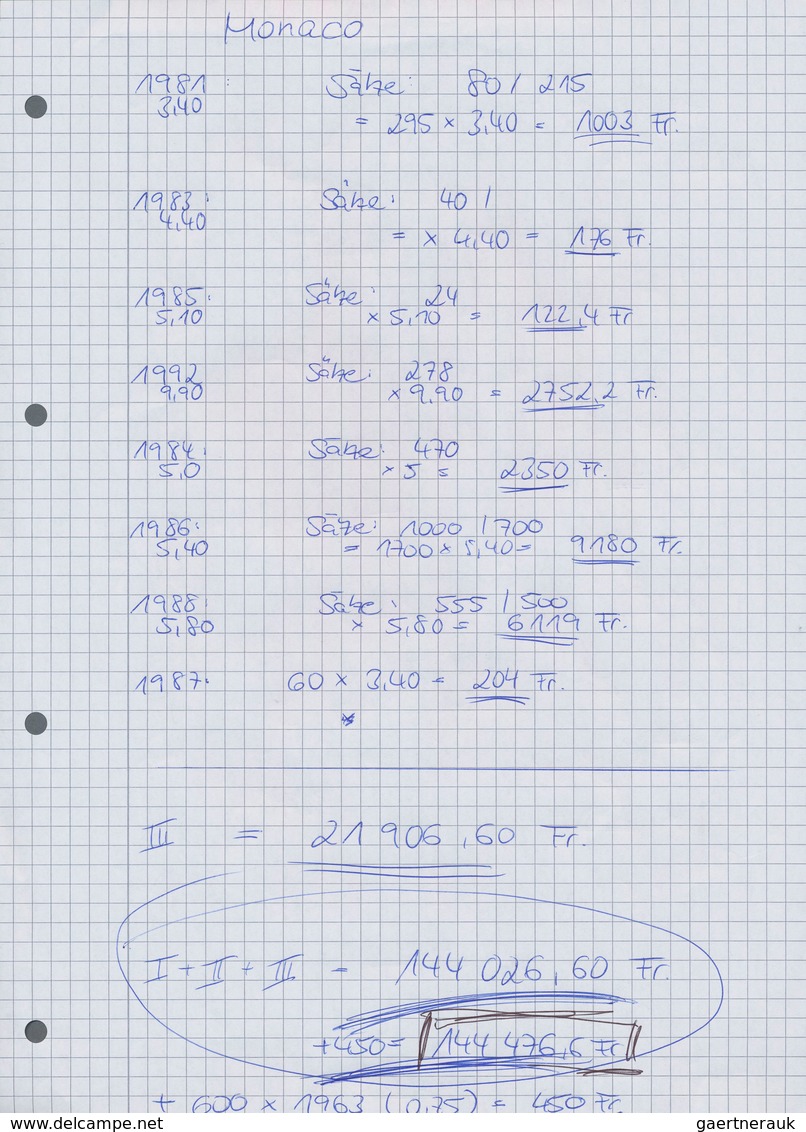 Monaco
1981: Sätze: 80 / 215
3,40 = 295 × 3,40 = 1003 Fr.
1983: Sätze: 40 /
4,40 = × 4,40 = 176 Fr.
1985: Sätze: 24
5,10 × 5,10 = 122,4 Fr
1992 Sätze: 278
9,90 × 9,90 = 2752,2 Fr.
1984: Sätze: 470
5,0 × 5 = 2350 Fr.
1986: Sätze: 1000 / 700
5,40 = 1700 × 5,40 = 9180 Fr.
1988: Sätze: 555 / 500
5,80 × 5,80 = 6119 Fr.
1987: 60 × 3,40 = 204 Fr.
III = 21 906,60 Fr.
I + II + III = 144 026,60 Fr.
+450 = 144 476,6 Fr
+ 600 × 1963 (0,75) = 450 Fr.
www.delcampe.net
gaertnerauk